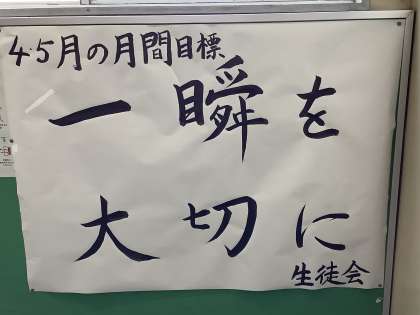 4・5月の月間目標
一瞬を
大切に
生徒会